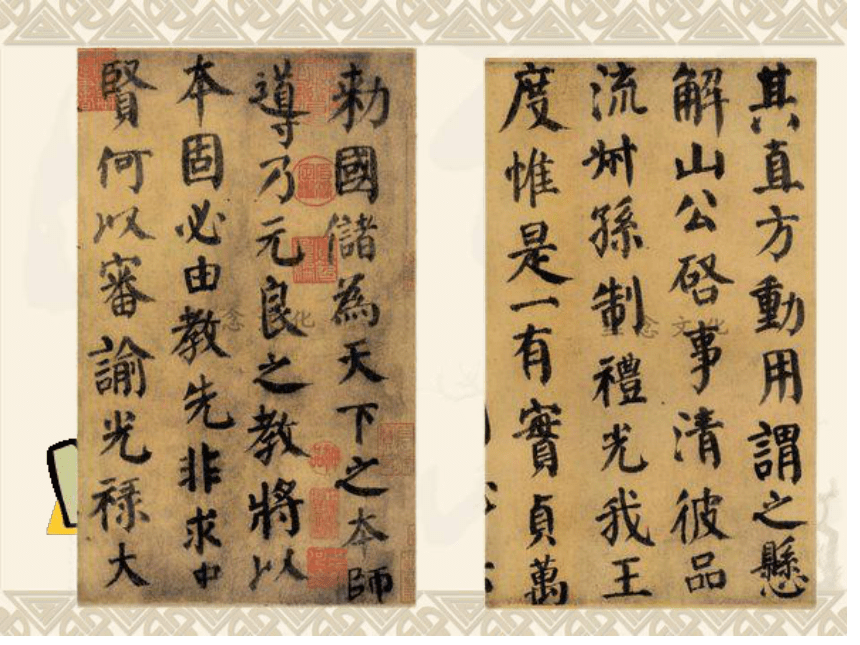 勑國儲為天下之本師
導乃元良之教將以
本固必由教先非求中
賢何以審諭光禄大
其直方動用謂之懸
解山公啓事清彼品
流州孫制禮光我王
度惟是一有實貞萬
念文化